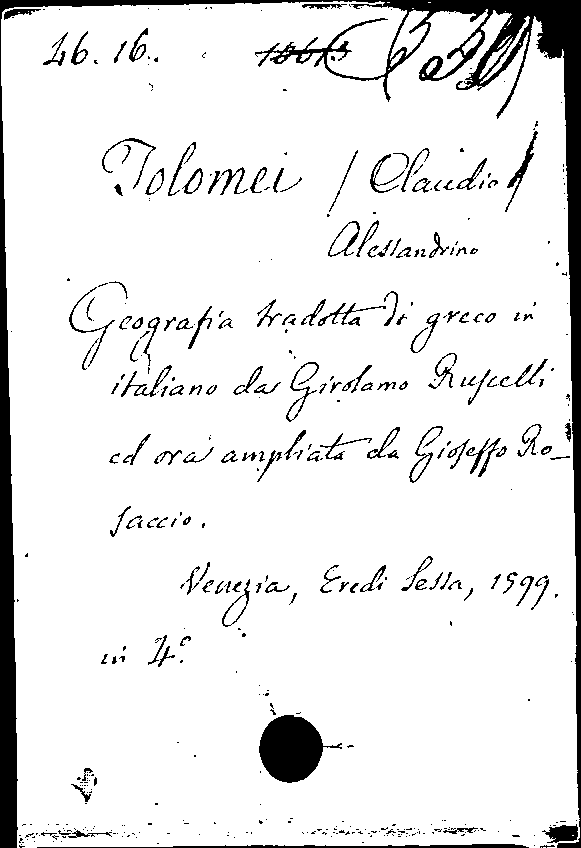 46.16.
Tolomei / Claudio /
Alessandrino
Geografia tradotta di greco in
italiano da Girolamo Ruscelli
ed ora ampliata da Gioseffo Ro_
saccio.
Venezia, Eredi Sessa, 1599.
in 4°.